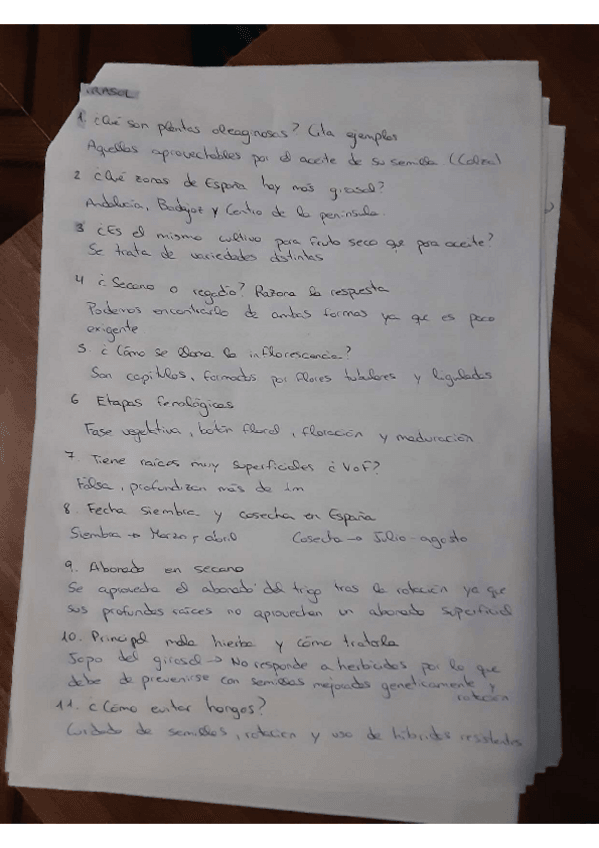 GIRASOL
1 ¿Qué son plantas oleaginosas? Cita ejemplos
Aquellas aprovechables por el aceite de su semilla (Colza)
2 ¿Qué zonas de España hay más girasol?
Andalucía, Badajoz y Centro de la península.
3 ¿Es el mismo cultivo para fruto seco que para aceite?
Se trata de variedades distintas
4 ¿Secano o regadío? Razona la respuesta
Podemos encontrarlo de ambas formas ya que es poco
exigente
5. ¿Cómo se llama la inflorescencia?
Son capítulos, formados por flores tubulares y liguladas
6 Etapas fenológicas
Fase vegetativa, botón floral, floración y maduración
7. Tiene raíces muy superficiales ¿V o F?
Falsa, profundizan más de 1m
8. Fecha siembra y cosecha en España
Siembra → Marzo y abril Cosecha → Julio - agosto
9. Abonado en secano
Se aprovecha el abonado del trigo tras la rotación ya que
sus profundas raíces no aprovechan un abonado superficial
10. Principal mala hierba y cómo tratarla
Jopo del girasol → No responde a herbicidas por lo que
debe de prevenirse con semillas mejoradas genéticamente y
rotación
11. ¿Cómo evitar hongos?
Cuidado de semillas, rotación y uso de híbridos resistentes